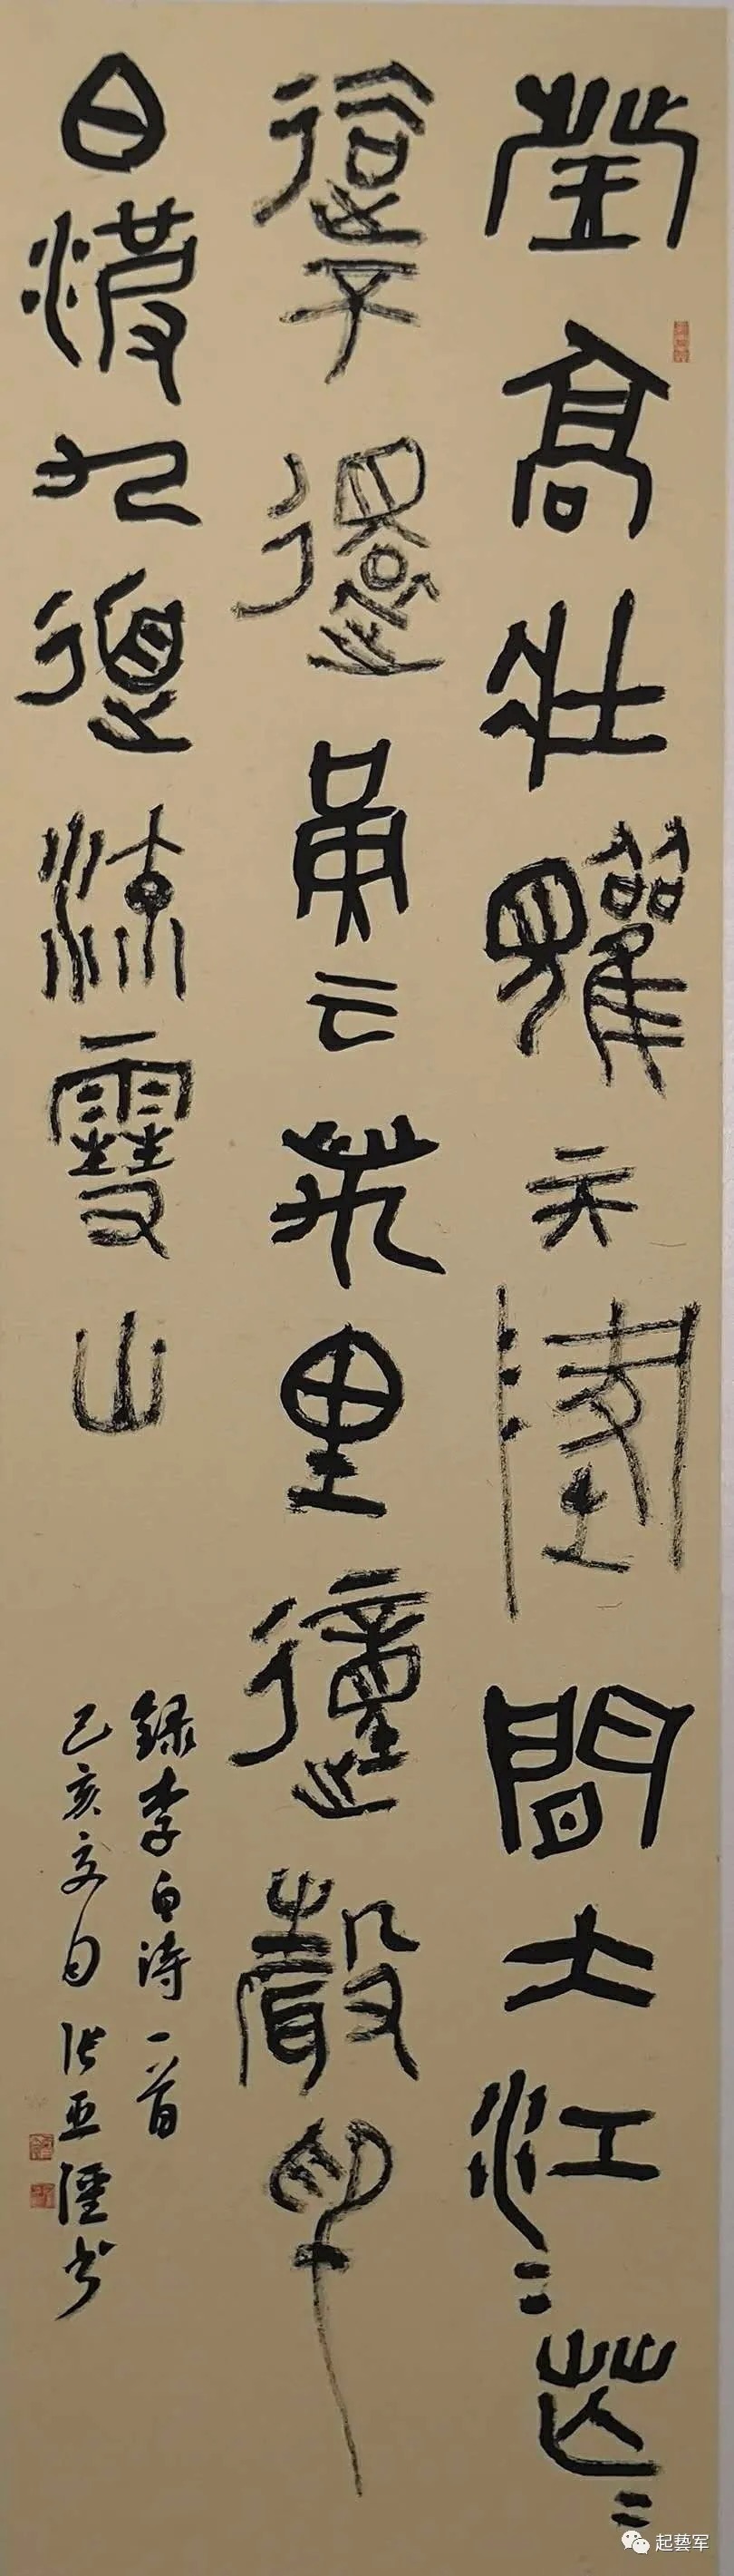 高壯觀天地間大江〻茫〻
去不還黃云萬里動聲色
白波九道流雪山
録李白詩一首
己亥夏日張亞書
起藝军